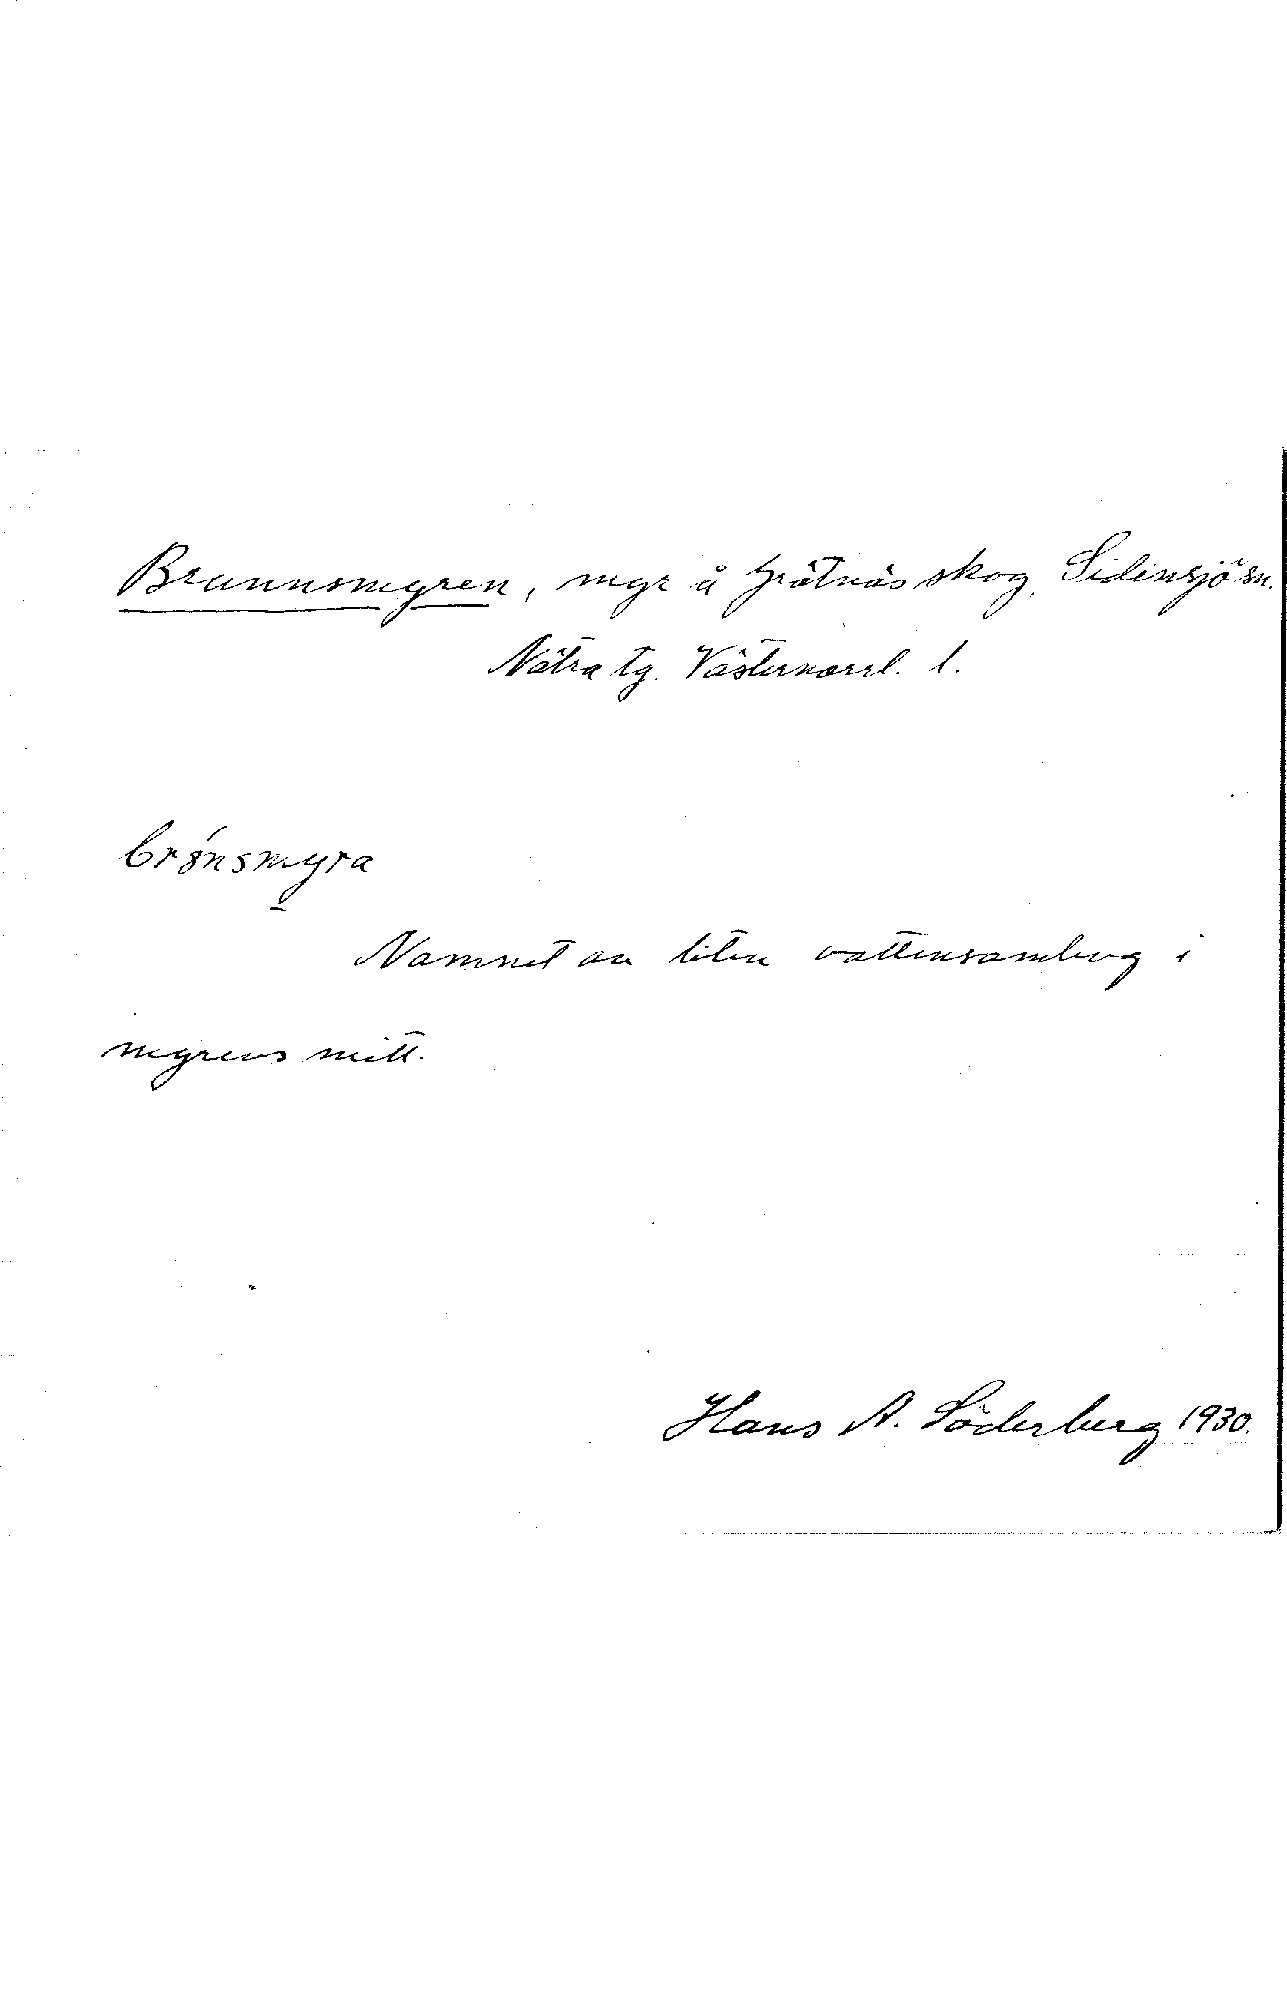 Brunnsmyren, myr å Grätnäs skog, Sidensjö sn.
Nätra tg. Västernorrl. l.
brønsmyra
Namnet av liten vattensamling i
myrens mitt.
Hans A. Söderberg 1930.